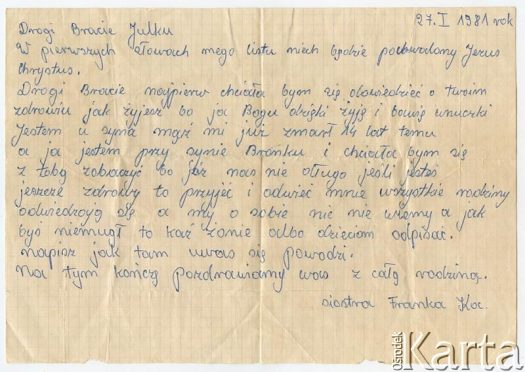 27.I 1981 rok
Drogi Bracie Julku
W pierwszych słowach mego listu niech będzie pochwalony Jezus
Chrystus.
Drogi Bracie najpierw chciała bym się dowiedzieć o twoim
zdrowiu jak żyjesz bo ja Bogu dzięki żyję i bawię wnuczki
Jestem u syna mąż mi już zmarł 14 lat temu
a ja jestem przy synie Brońku i chciała bym się
z tobą zobaczyć bo już nas nie długo jeśli jesteś
jeszcze zdrowy to przyjeć i odwieć mnie wszystkie rodziny
odwiedzają się a my o sobie nic nie wiemy a jak
byś niemugł to każ żonie albo dzieciom odpisać.
napisz jak tam uwas się powodzi.
Na tym kończę Pozdrawiamy was z całą rodziną.
siostra Franka Koc.
ośrodek Karta